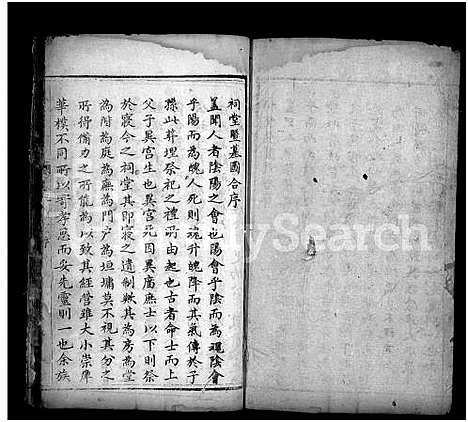 祠堂暨墓圖合序
蓋聞人者陰陽之會也陽會乎陰而為魂陰會
乎陽而為魄人死則魂升魄降而其氣傳於子
孫此葬埋祭祀之禮所由起也古者命士而上
父子異宮生也異宮死因異廟庶士以下則祭
於寢今之祠堂其即寢之遺制歟其為房為堂
為附為庭為廡為門戶為垣墉莫不視其分之
所得備力之所能為以致其經營雖大小崇庳
華樸不同所以寄孝思而妥先靈則一也余族
MySearch